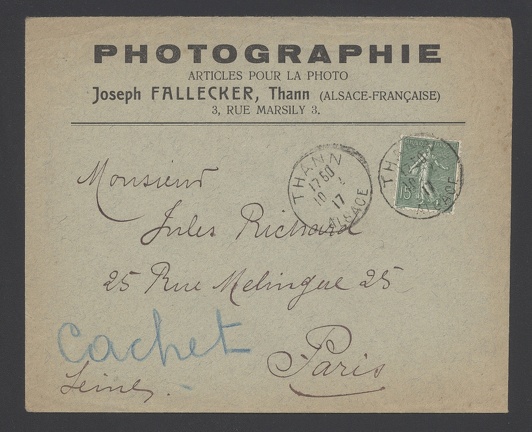 PHOTOGRAPHIE
ARTICLES POUR LA PHOTO
Joseph FALLECKER, Thann (ALSACE-FRANÇAISE)
3, RUE MARSILY 3.
THANN
17 50
10 1
17
ALSACE
THANN
ALSACE
15
Monsieur
Jules Richard
25 Rue Melingue 25
Paris
Cachet
Seine.